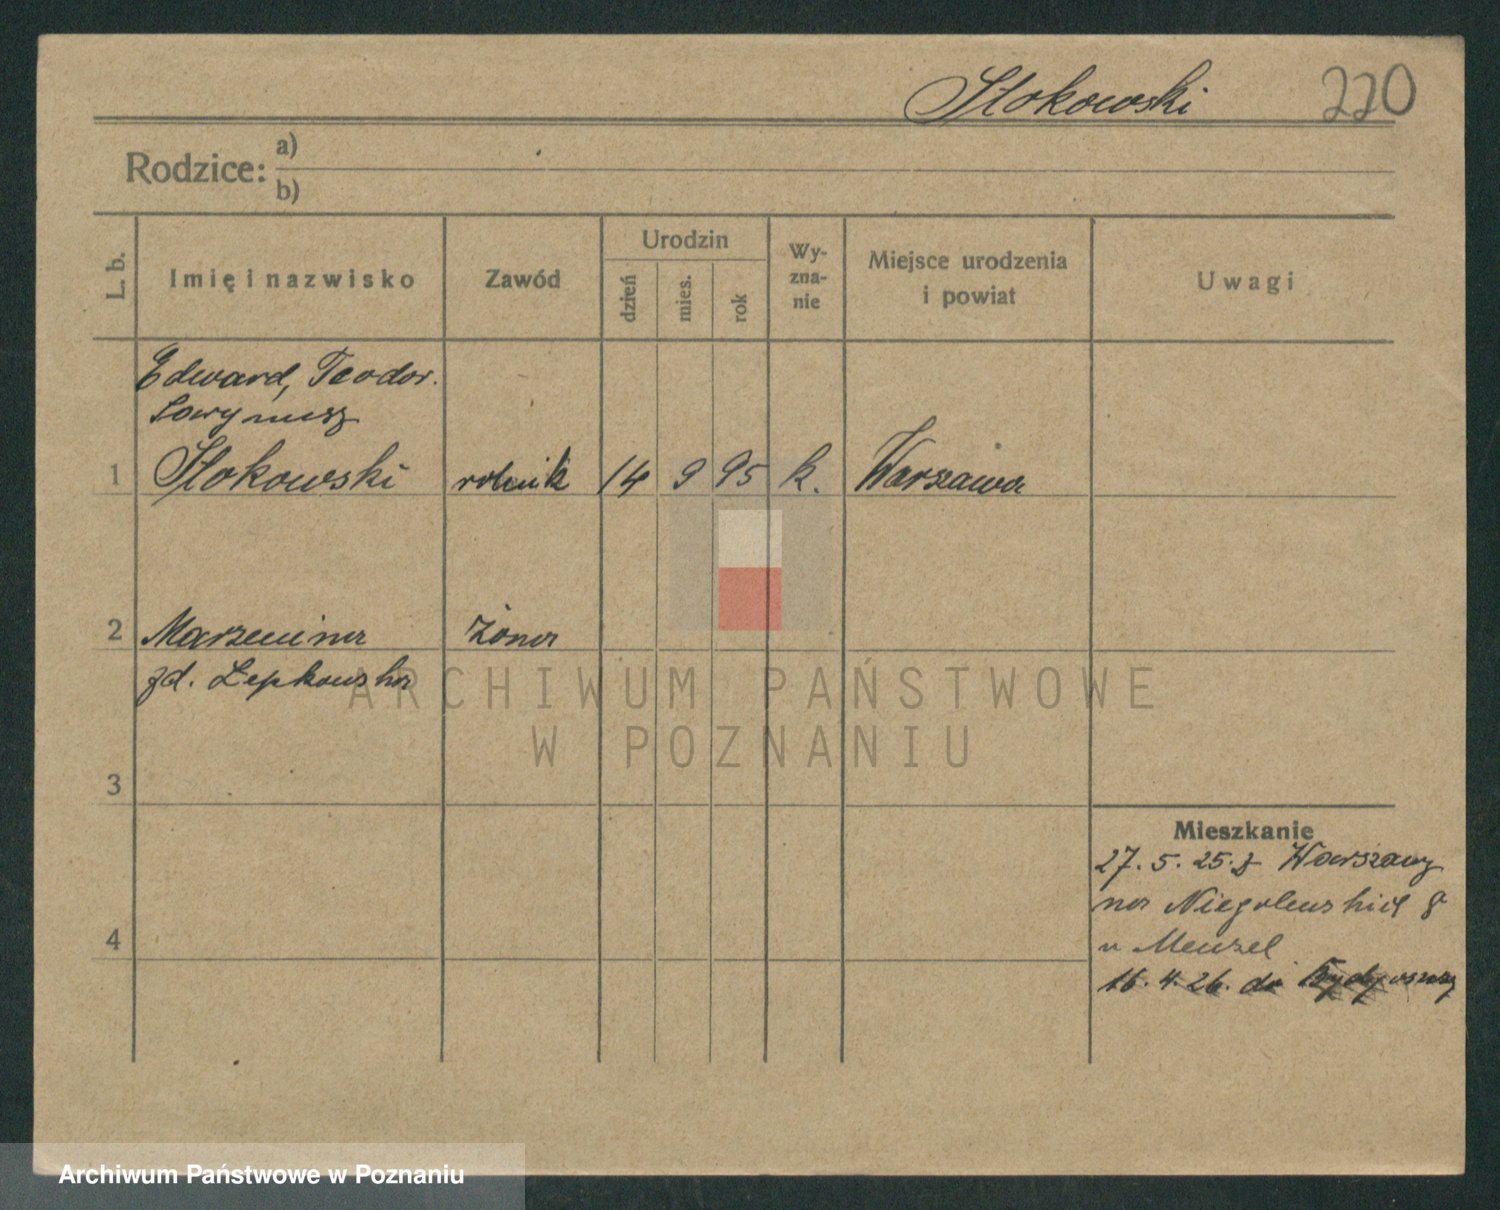 Stokowski 220
Rodzice: a)
b)
L. b.
Imię i nazwisko
Zawód
Urodzin
dzień
mies.
rok
Wy-
zna-
nie
Miejsce urodzenia
i powiat
Uwagi
Edward, Teodor.
1 Stokowski rolnik 14 9 95 k. Warszawa
2 Marzenina żona
zd. Łepkowska
3
4
Mieszkanie
27. 5. 25. z Warszawy
na Niegolewskich 8
u Menzel
16. 4. 26. do Bydgoszczy
ARCHIWUM PAŃSTWOWE
W POZNANIU
Archiwum Państwowe w Poznaniu